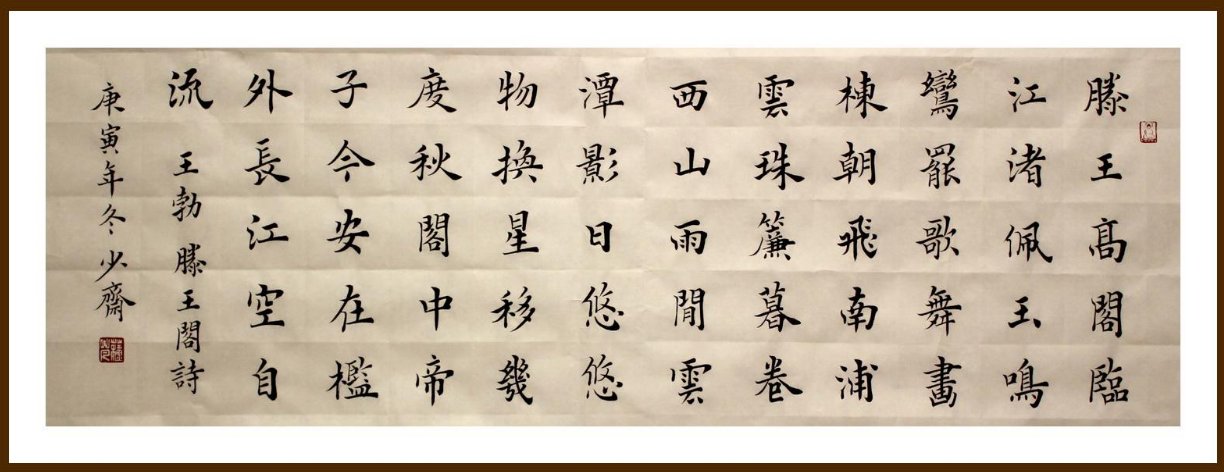 滕王高閣臨
江渚佩玉鳴
鸞罷歌舞畫
棟朝飛南浦
雲珠簾暮卷
西山雨閒雲
潭影日悠悠
物換星移幾
度秋閣中帝
子今安在檻
外長江空自
流 王勃 滕王閣詩
庚寅年冬 少齋